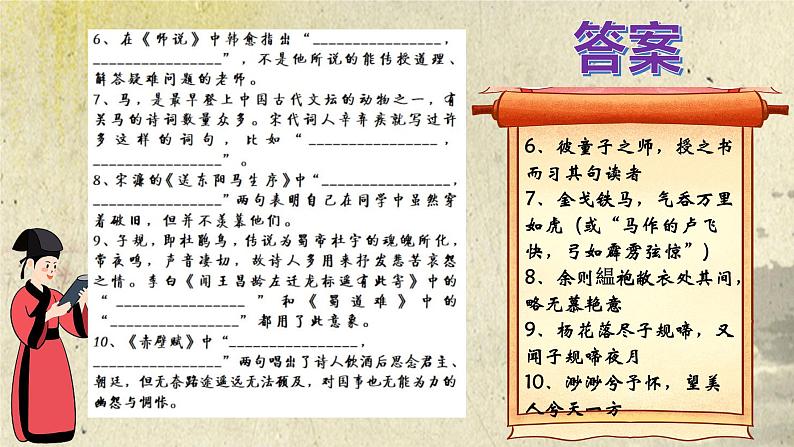 6、在《师说》中韩愈指出“________________，
________________”，不是他所说的能传授道理、
解答疑难问题的老师。
7、马，是最早登上中国古代文坛的动物之一，有
关马的诗词数量众多。宋代词人辛弃疾就写过许
多这样的词句，比如“________________，
________________”。
8、宋濂的《送东阳马生序》中“________________，
________________”两句表明自己在同学中虽然穿
着破旧，但并不羡慕他们。
9、子规，即杜鹃鸟，传说为蜀帝杜宇的魂魄所化，
常夜鸣，声音凄切，故诗人多用来抒发悲苦哀怨
之情。李白《闻王昌龄左迁龙标遥有此寄》中的
“________________”和《蜀道难》中的
“________________”都用了此意象。
10、《赤壁赋》中“________________，
________________”两句唱出了诗人饮酒后思念君主、
朝廷，但无奈路途遥远无法顾及，对国事也无能为力的
幽怨与惆怅。
答案
6、彼童子之师，授之书
而习其句读者
7、金戈铁马，气吞万里
如虎（或“马作的卢飞
快，弓如霹雳弦惊”）
8、余则缊袍敝衣处其间，
略无慕艳意
9、杨花落尽子规啼，又
闻子规啼夜月
10、渺渺兮予怀，望美
人兮天一方